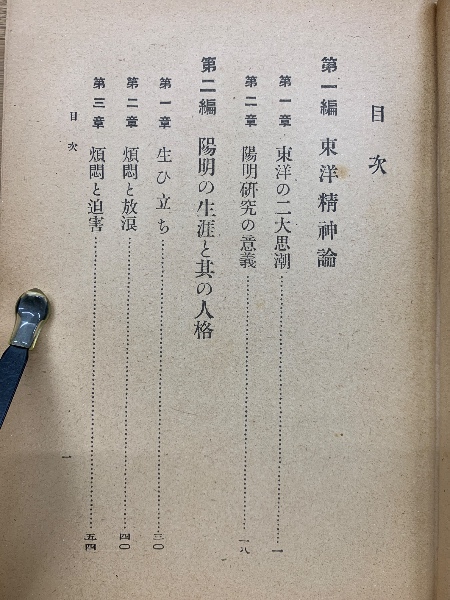 目次
第一編 東洋精神論
第一章 東洋の二大思潮 一
第二章 陽明研究の意義 一八
第二編 陽明の生涯と其の人格
第一章 生ひ立ち 三〇
第二章 煩悶と放浪 四〇
第三章 煩悶と迫害 五四
目次 一